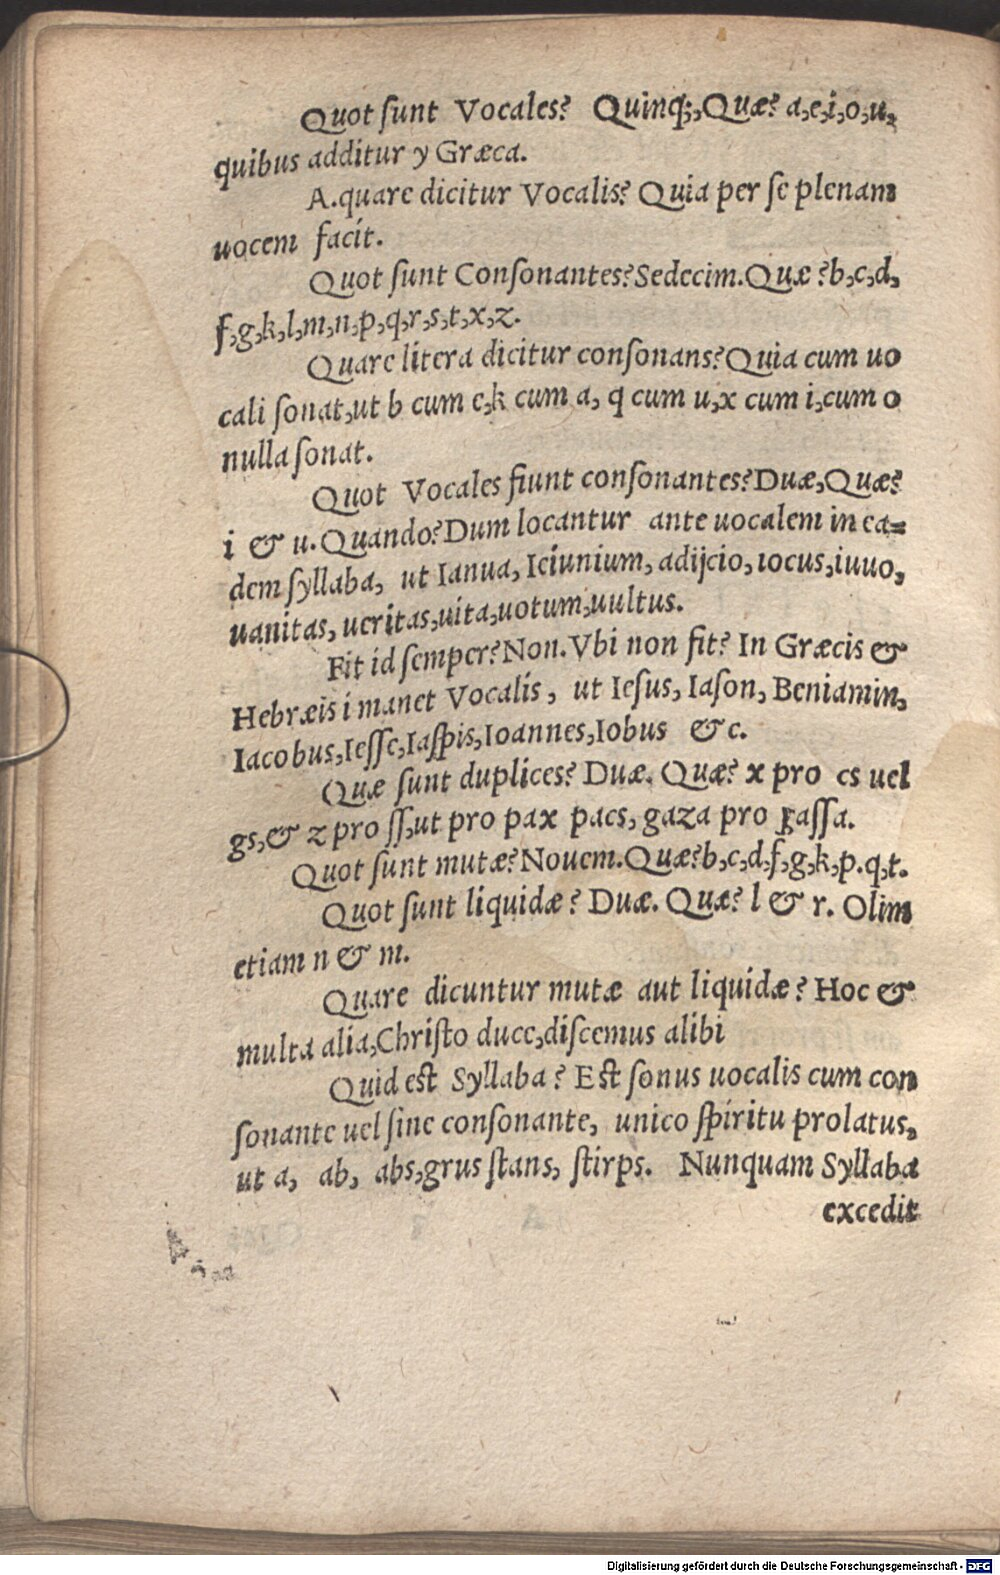 Quot ſunt Vocales? Quinq;, Quæ? a,e,i,o,u,
quibus additur y Græca.
A. quare dicitur Vocalis? Quia per ſe plenam
uocem facit.
Quot ſunt Conſonantes? Sedecim. Quæ? b,c,d,
f,g,k,l,m,n,p,q,r,s,t,x,z.
Quare litera dicitur conſonans? Quia cum uo
cali ſonat, ut b cum e, k cum a, q cum u, x cum i, cum o
nulla ſonat.
Quot Vocales fiunt conſonantes? Duæ, Quæ?
i & u. Quando? Dum locantur ante uocalem in ea=
dem ſyllaba, ut Ianua, Ieiunium, adijcio, iocus, iuuo,
uanitas, ueritas, uita, uotum, uultus.
Fit id ſemper? Non. Vbi non fit? In Græcis &
Hebræis i manet Vocalis, ut Ieſus, Iaſon, Beniamin,
Iacobus, Ieſſe, Iaſpis, Ioannes, Iobus & c.
Quæ ſunt duplices? Duæ. Quæ? x pro cs uel
gs, & z pro ſſ, ut pro pax pacs, gaza pro gaſſa.
Quot ſunt mutæ? Nouem. Quæ? b,c,d,f,g,k,p.q,t.
Quot ſunt liquidæ? Duæ. Quæ? l & r. Olim
etiam n & m.
Quare dicuntur mutæ aut liquidæ? Hoc &
multa alia, Chriſto duce, diſcemus alibi
Quid eſt Syllaba? Eſt ſonus uocalis cum con
ſonante uel ſine conſonante, unico ſpiritu prolatus,
ut a, ab, abs, grus ſtans, ſtirps. Nunquam Syllaba
excedit
Digitalisierung gefördert durch die Deutsche Forschungsgemeinschaft - DFG